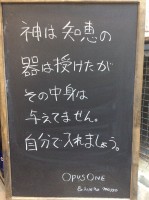 神は知恵の
器は授けたが
その中身は
与えてません。
自分で入れましょう。
OPUS ONE